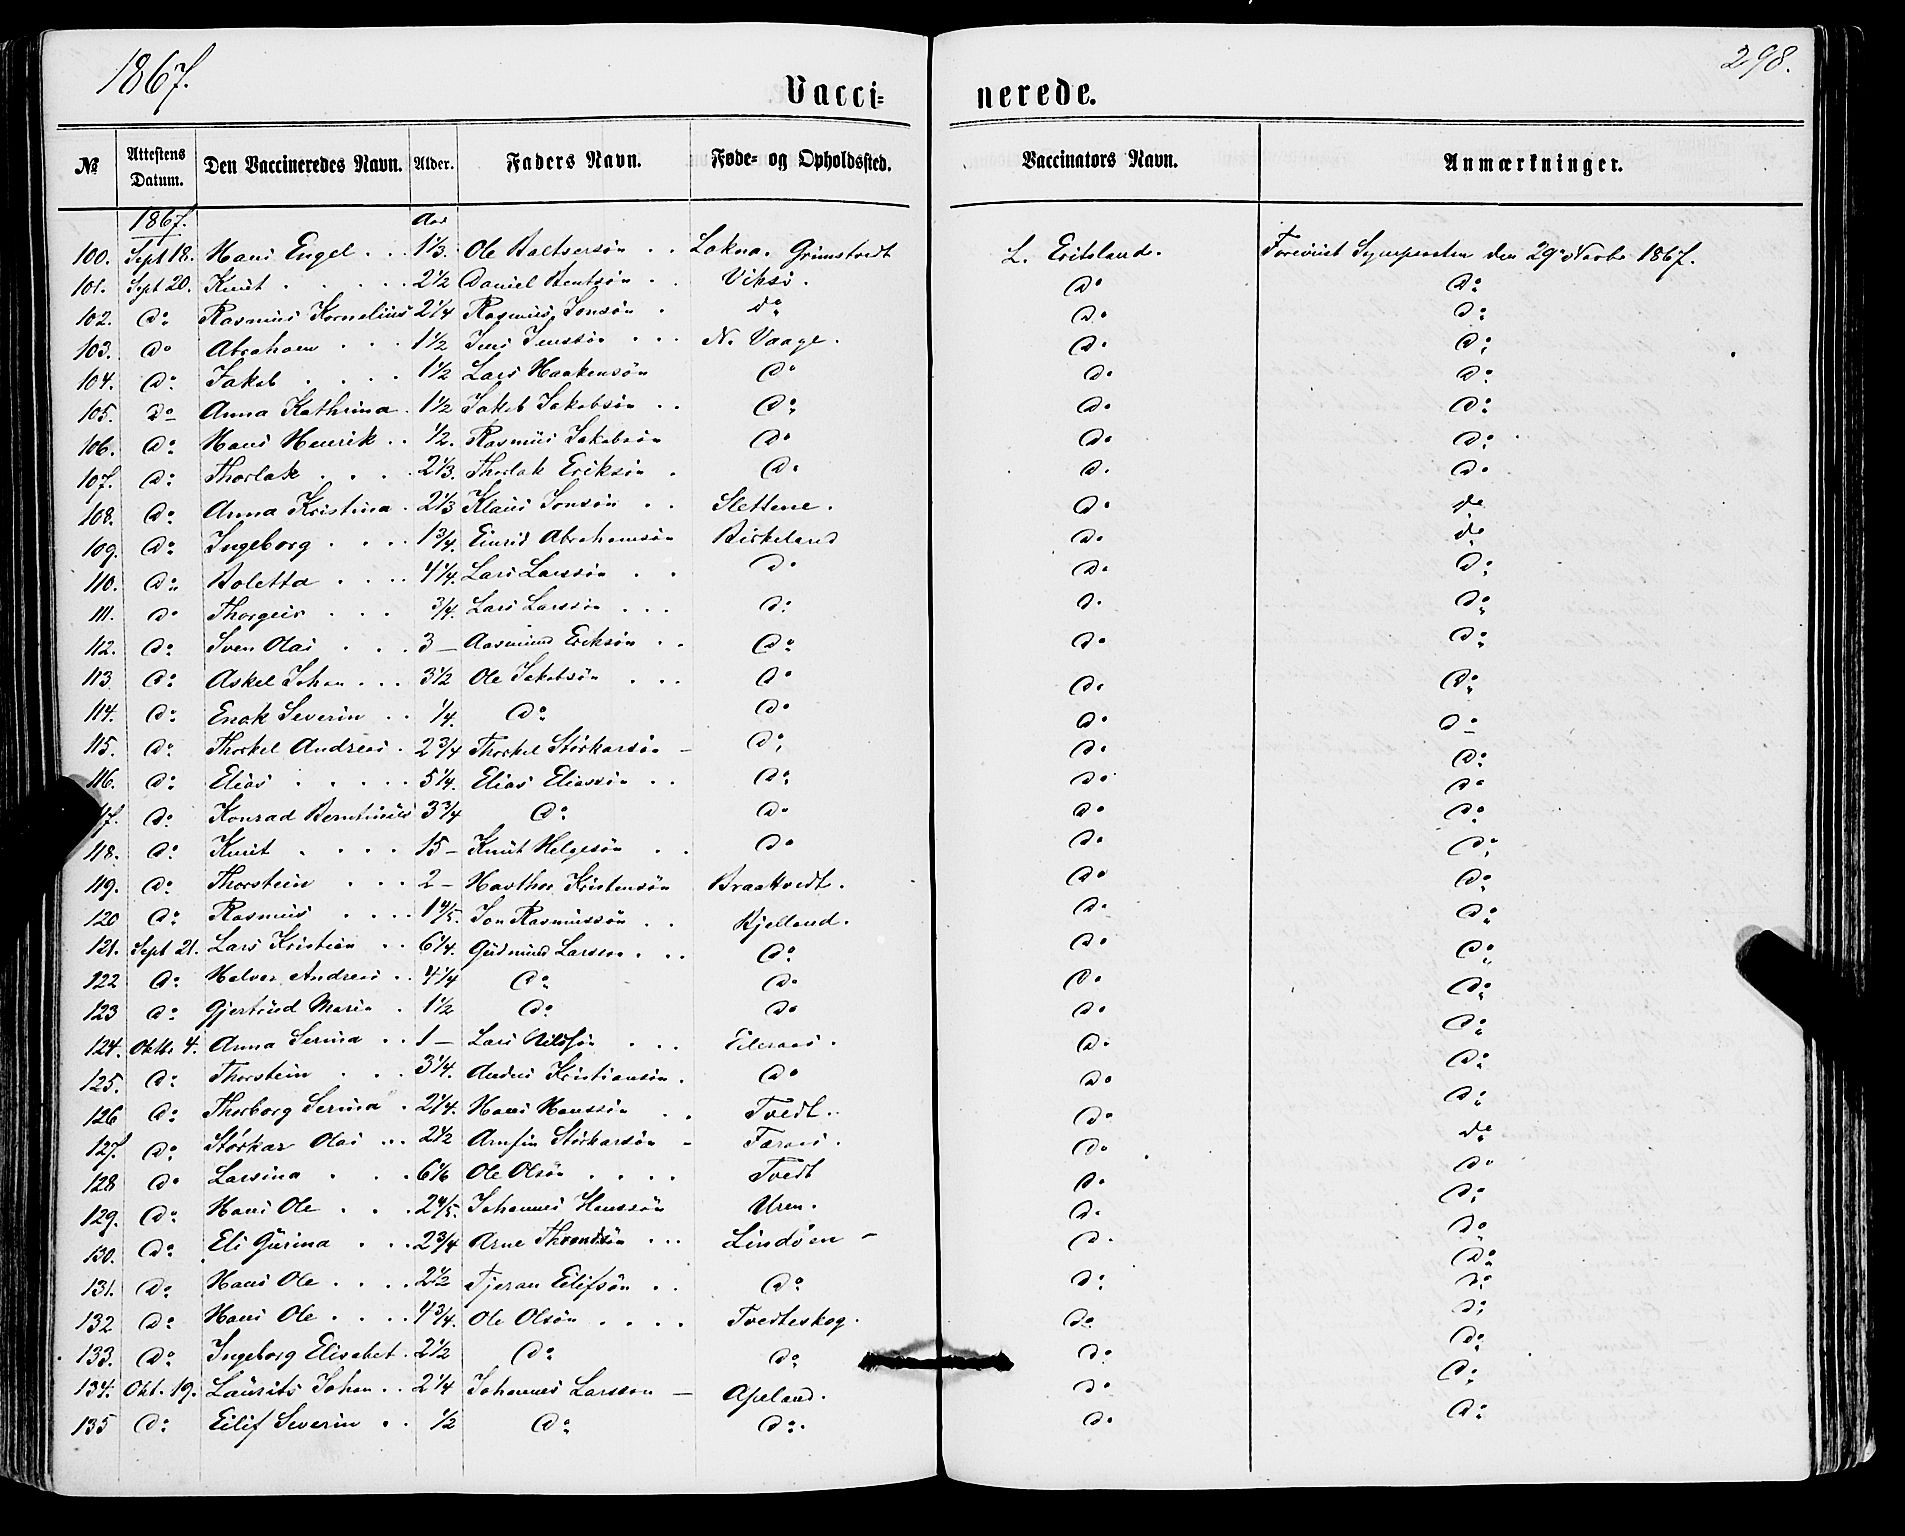 1867.
298.
Vacci= nerede.
№ Attestens Datum. Den Vaccineredes Navn. Alder. Faders Navn. Føde= og Opholdssted. Vaccinators Navn. Anmærkninger.
1867. Aar
100. Sept 18. Hans Engel . . . 1⅓. Ole Baltsersön . . Grimstvedt L. Eritsland. den 29de 1867.
101. Sept 20. Knut . . . . . 2½ Daniel Bentsön . . Viksi. do do
102. do Rasmus Kornelius 2¼ Rasmus Jonsön . do do do
103. do Abraham . . . 1½ Jens Jenssön . . . N. Vaage. do do
104. do Jakob . . . . 1½ Lars Haakensön do do do
105. do Anna Kathrina . 1½ Jakob Jakobsön . . do do do
106. do Hans Henrik . . ½. Rasmus Jakobsön do do do
107. do Thorlak . . . . 2⅓. Thorlak Eriksön . do do do
108. do Anna Kristina . 2⅓ Klaus Jonsön . . Slettene. do do
109. do Ingeborg . . . . 1¾. Abrahamsön Birkeland do do
110. do Boletta . . . . 4¼. Lars Larssön . . do do do
111. do Thorgeir . . . ¾. Lars Larssön . . . do do do
112. do Sven Olai . . . 3 – Aasmund Eriksön . . do do do
113 do Askel Johan . . . 3½ Ole Jakobsön . . . do do do
114. do Enok Severin . . ¼. do do do do
115. do Thorkel Andreas . 2¾ Thorkel Störkarsön – do do do
116. do Elias . . . . . 5¼. Elias Eliassön . . do do do
117. do Konrad Berntinius 3¾ do do do do
118. do Knut . . . . 15 – Knut Helgesön . . do do do
119. do Thorstein . . . 2 – Havthor Kristensön Braatvedt. do do
120 do Rasmus . . . . 1⅘. Jon Rasmussön . . Kjelland. do do
121. Sept 21. Lars Kristian . . 6¼. Gudmund Larsson . . . do do do
122 do Halvor Andreas . . 4¼ do do do do
123 do Gjertrud Maria . 1½ do do do do
124. Oktbr 4. Anna Serina . . 1 – Lars Nilssön . . . Eileraas. do do
125. do Thorstein . . . 3¼. Anders Kristiansön . do do do
126 do Thorborg Serina . 2¼. Hans Hanssön . . Tvedt. do do
127. do Störkar Olai . . . 2½ Arnfin Störkarsön – Faraas. do do
128 do Larsina . . . 6⅙ Ole Olsön . . . . Tvedt do do
129. do Hans Ole . . . 2⅘. Johannes Hanssön Uren. do do
130. do Eli Gurina . . . 2¾ Arne Throndsön . . . Lindöen – do do
131. do Hans Ole . . . . 2½ Tjeran Eilifsön . . do do do
132 do Hans Ole . . . . 4¾. Ole Olsön . . . . Tvedteskog. do do
133. do Ingeborg Elisabet . 2½ do do do do
134. Okt. 19. Laurits Johan . . 2¼ Johannes Larsson – Apeland. do do
135 do Eilif Severin . . ½ do do do do